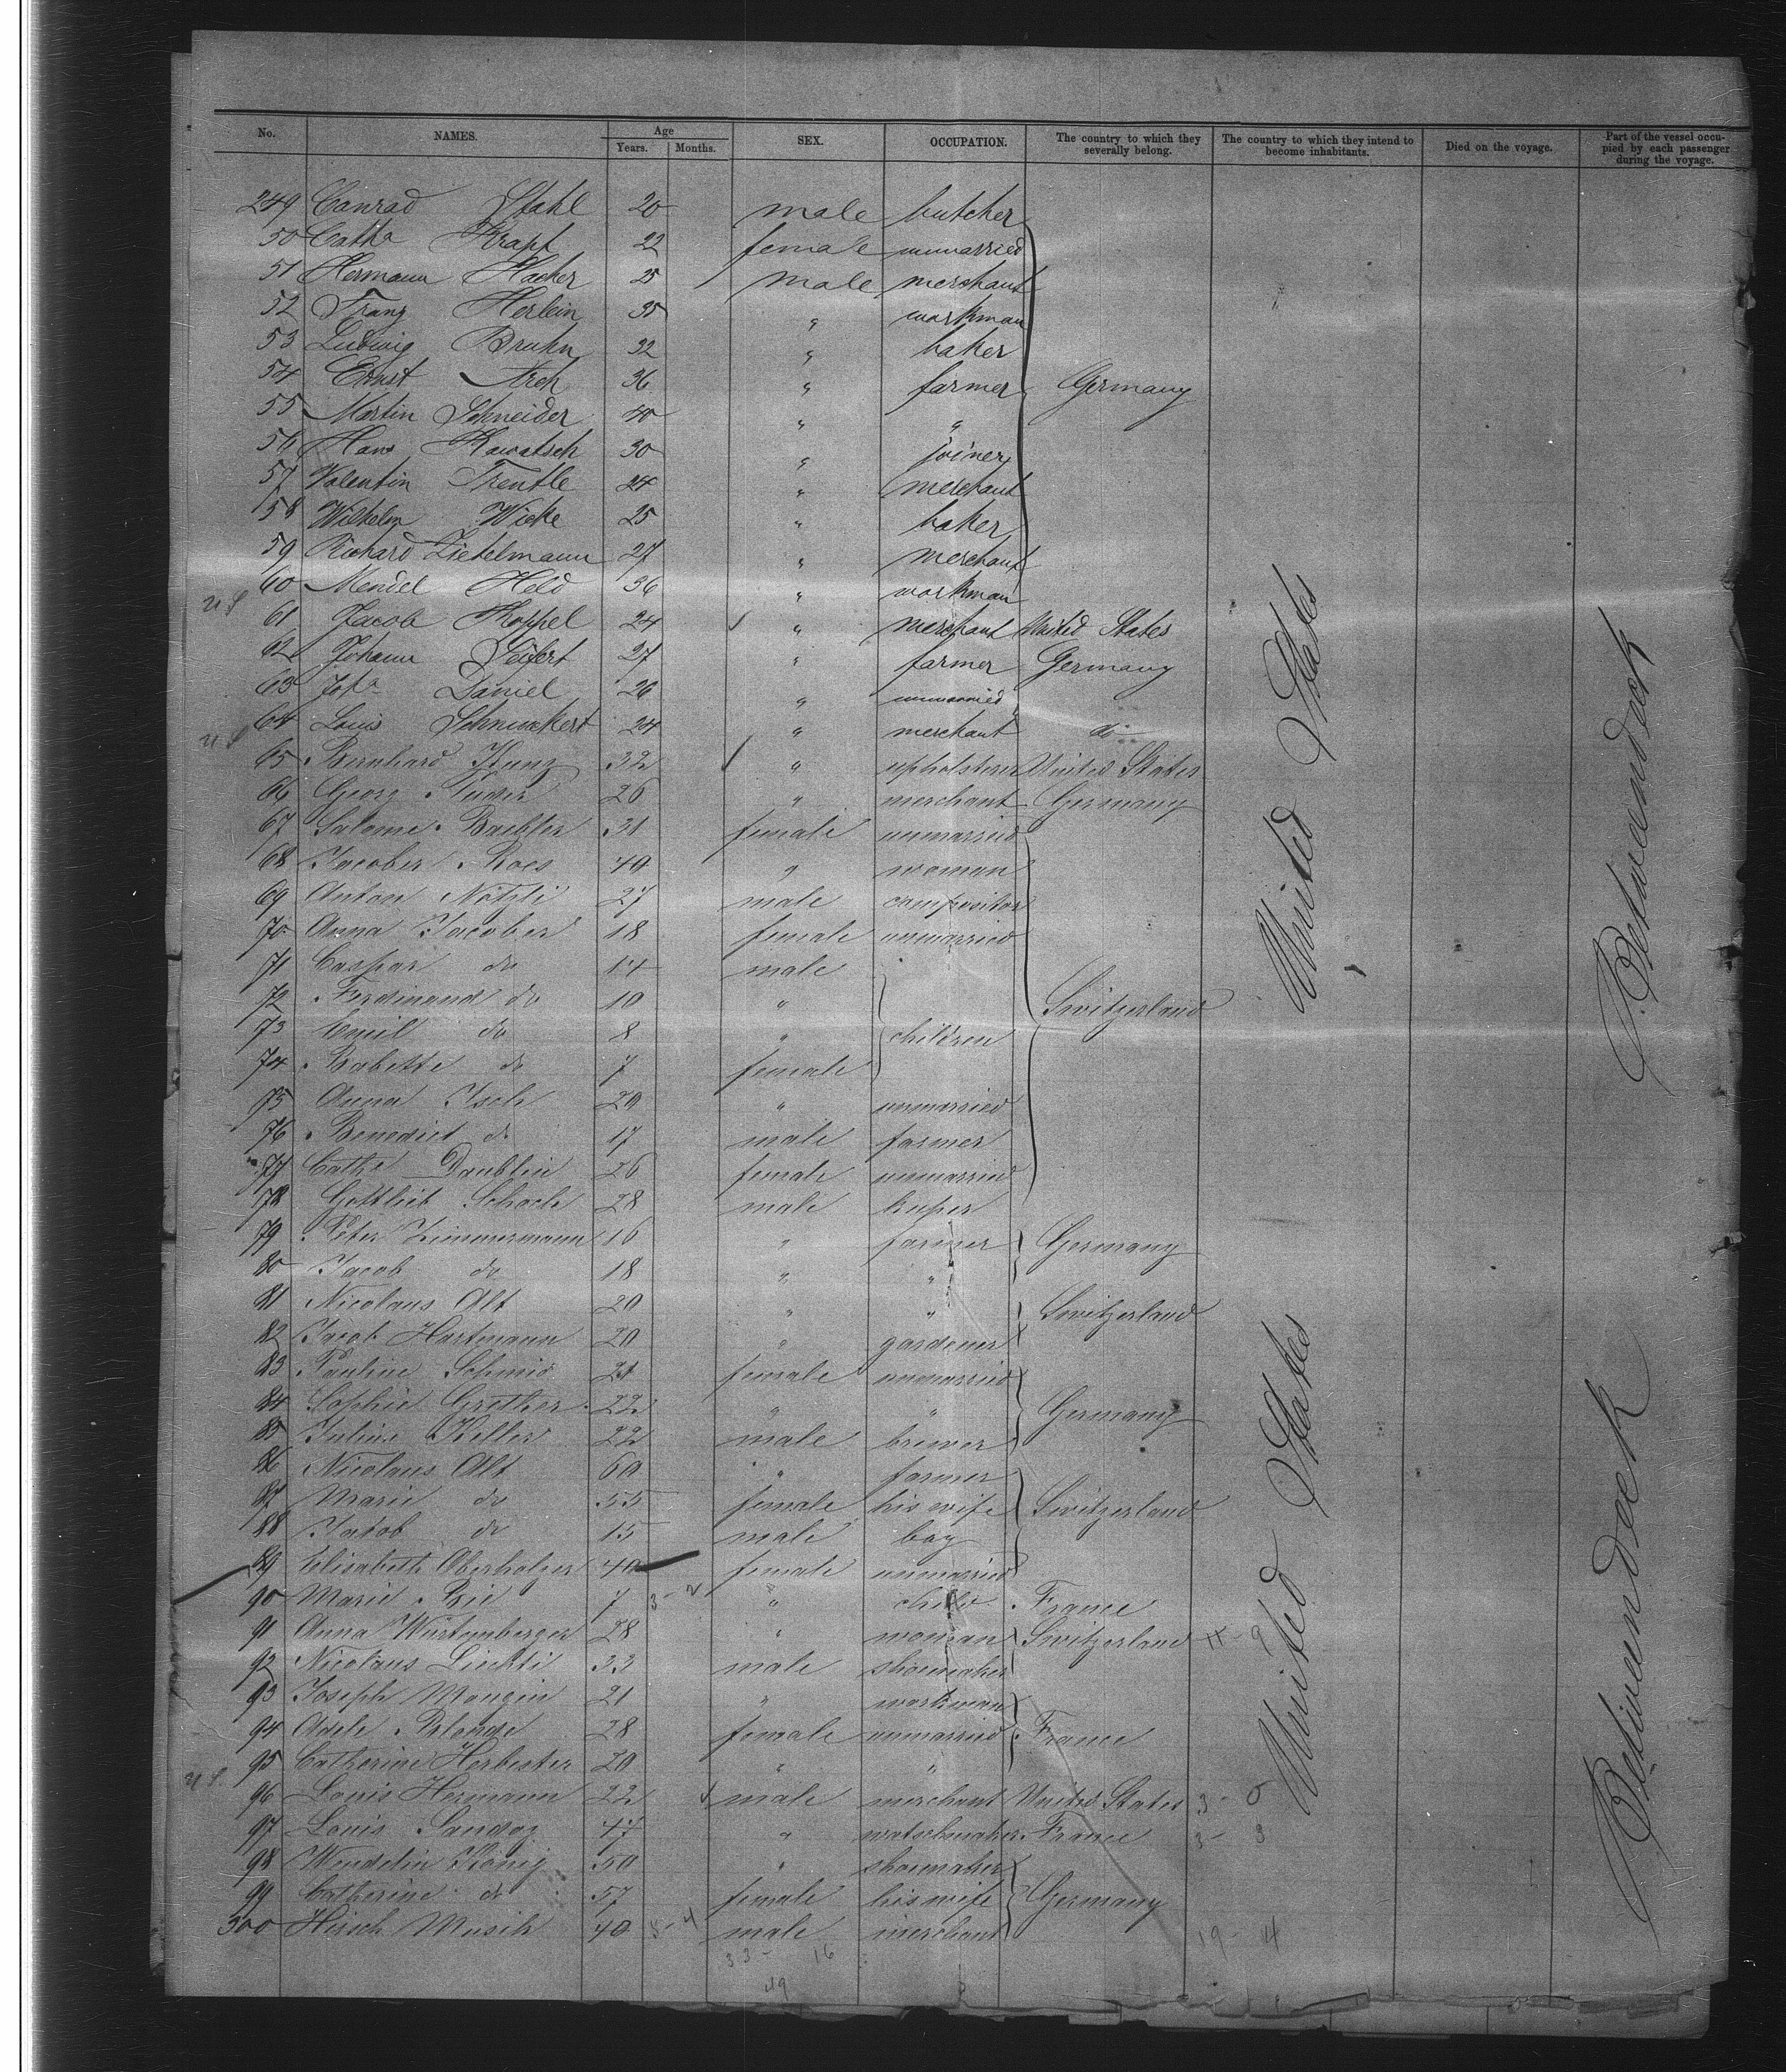 No. NAMES. Age Years. Months. SEX. OCCUPATION. The country to which they severally belong. The country to which they intend to become inhabitants. Died on the voyage. Part of the vessel occupied by each passenger during the voyage.
249 Conrad Stahl 20 male butcher
50 Catha Krapf 22 female unmarried
51 Hermann Hacker 25 male merchant
52 Franz Herlein 35 " workman
53 Ludwig Bruhn 32 " baker
54 Ernst Arch 36 " farmer Germany
55 Martin Schneider 40 " "
56 Hans Kawatsch 30 " joiner
57 Valentin Trentle 24 " merchant
58 Wilhelm Wicke 25 " baker
59 Richard Ziehelmann 27 " merchant
60 Mendel Held 36 " workman
U.S. 61 Jacob Koppel 24 " merchant United States
62 Johann Seifert 27 " farmer Germany
63 Jos. Daniel 26 " unmarried
64 Louis Schmuckert 24 " merchant do
U.S. 65 Bernhard Kunz 32 " upholsterer United States
66 Georg 26 " merchant Germany
67 Salome Baebler 31 female unmarried
68 Jacober Roes 49 " woman
69 Anton Nötzli 27 male compositor
70 Anna Jacober 18 female unmarried
71 Caspar do 14 male
72 Ferdinand do 10 " Switzerland
73 Emil do 8 " children
74 Babette do 7 female
75 Anna Isch 20 " unmarried
76 Benedict do 17 male farmer
77 Cathe Daublin 26 female unmarried
78 Gottlieb Schoch 28 male
79 Peter Zimmermann 16 " farmer Germany
80 Jacob do 18 " "
81 Nicolaus Alt 20 " " Switzerland
82 Jacob Hartmann 20 " gardener
83 Pauline Schmid 21 female unmarried
84 Sophie Grether 22 " " Germany
85 Julius Keller 22 male brewer
86 Nicolaus Alt 60 " farmer
87 Marie do 55 female his wife Switzerland
88 Jakob do 15 male boy
89 Elisabeth Oberholzer 40 female unmarried
90 Marie Bie 7 " child France
91 Anna Würtemberger 28 " woman Switzerland
92 Nicolaus Liechti 33 male shoemaker
93 Joseph Mangin 21 " workman
94 Adele Blonde 28 female unmarried France
95 Catherine Herbester 20 " "
U.S. 96 Louis Hermann 22 male merchant United States 3 - 0
97 Louis Sandoz 47 " watchmaker France 3 - 3
98 Wendelin König 50 " shoemaker
99 Catherine do 57 female his wife Germany
500 Hirsch Musik 40 male merchant 19 - 4
33 - 16
49
United States
United States
Betweendeck
Betweendeck